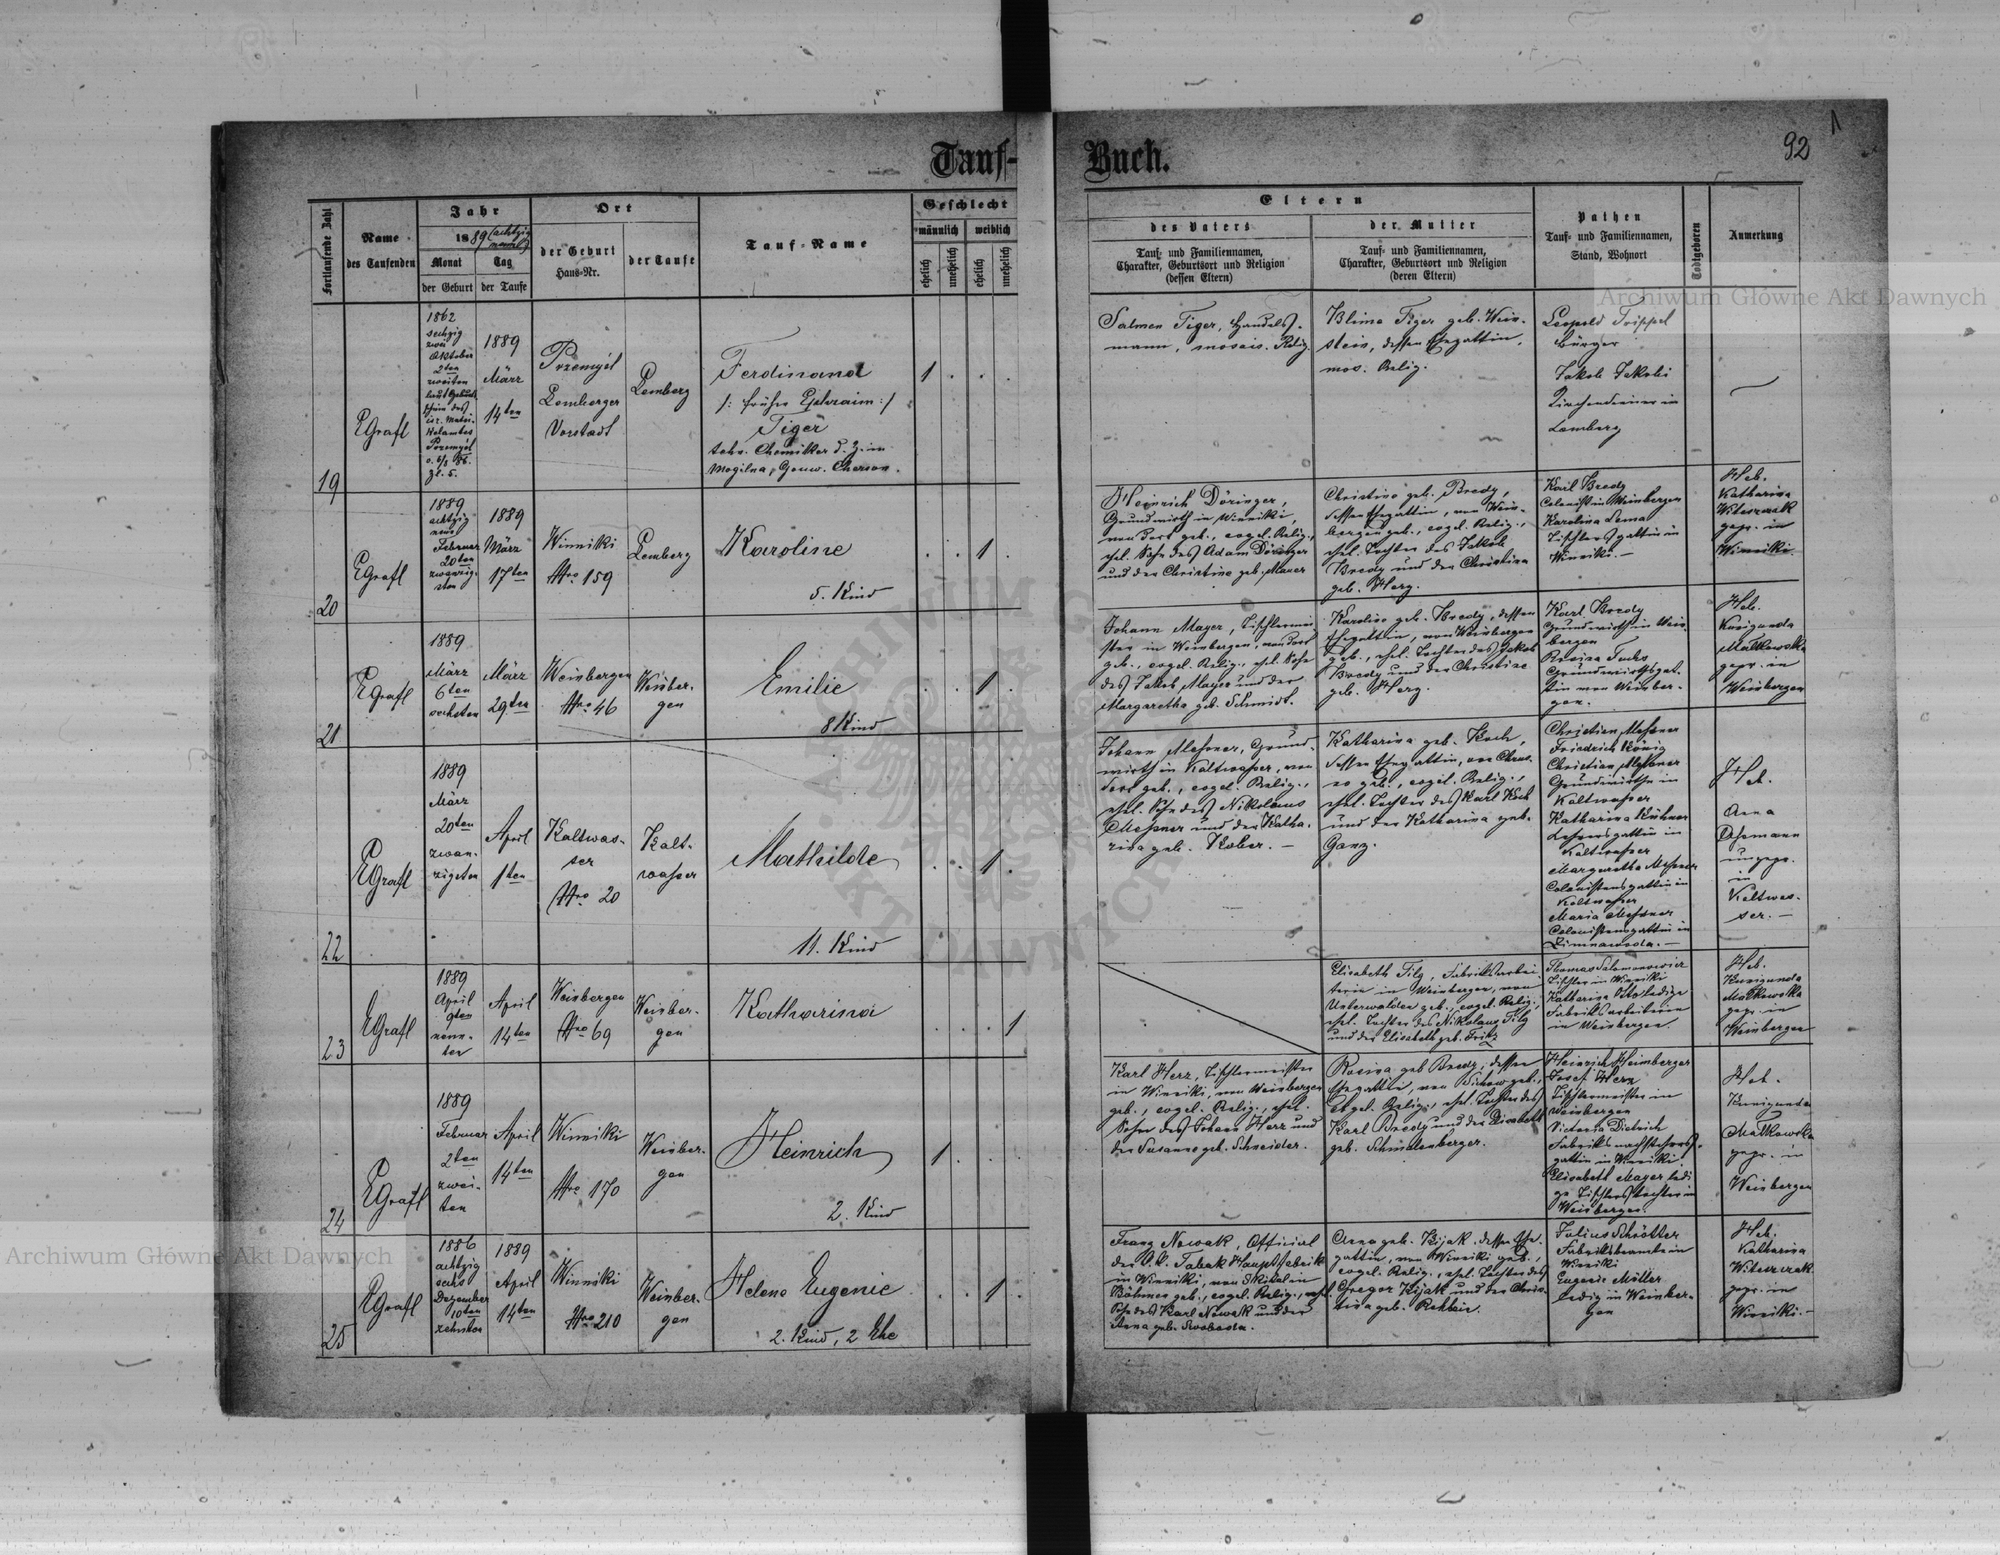 Tauf-
Buch.
92
Fortlaufende Zahl
Name
des Taufenden
Jahr
1889 (achtzig
neun)
Monat
Tag
der Geburt
der Taufe
Ort
der Geburt
Haus-Nr.
der Taufe
Tauf-Name
Geschlecht
männlich
weiblich
ehelich
unehelich
ehelich
unehelich
Eltern
des Vaters
Tauf- und Familiennamen,
Charakter, Geburtsort und Religion
(dessen Eltern)
der Mutter
Tauf- und Familiennamen,
Charakter, Geburtsort und Religion
(deren Eltern)
Pathen
Tauf- und Familiennamen,
Stand, Wohnort
Todtgeboren
Anmerkung
19
EGrafl
1862
sechzig
zwei
Oktober
2ten
zweiten
laut Geburt
schein des
isr. Matri-
kelamtes
Przemyśl
1889
März
14ten
Przemyśl
Lemberger
Vorstadt
Lemberg
Ferdinand
/: früher Ephraim :/
Tiger
techn. Chemiker d. z. in
Mogilna, Gouv. Cherson.
1
Salmen Tiger, Handels-
mann, mosais. Relig.
Blima Tiger geb. Wein-
stein, dessen Ehegattin,
mos. Relig.
Leopold
Bürger
Jakob Jakobi
Kirchendiener in
Lemberg
20
EGrafl
1889
achtzig
neun
Februar
20ten
zwanzig-
sten
1889
März
17ten
Winniki
Nro 159
Lemberg
Karoline
5. Kind
1
Heinrich Döringer,
Grundwirth in Winniki,
von dort geb., evgel. Relig.,
ehl. Sohn des Adam Döringer
und der Christine geb. Mauer
Christine geb. Bredy,
dessen Ehegattin, von Wein-
bergen geb., evgel. Relig.,
ehl. Tochter des Jakob
Bredy und der Christina
geb. Herg.
Karl Bredy
Colonist in Weinbergen
Karolina Lema
Tischlersgattin in
Winniki. —
Heb.
Katharina
Witeszczak
gepr. in
Winniki
21
EGrafl
1889
März
6ten
sechsten
März
29ten
Weinbergen
Nro 46
Weinber-
gen
Emilie
8 Kind
1
Johann Mayer, Tischlermei-
ster in Weinbergen, von dort
geb., evgel. Relig., ehl. Sohn
des Jakob Mayer und der
Margaretha geb. Schmidt.
Karoline geb. Bredy, dessen
Ehegattin, von Weinbergen
geb., ehel. Tochter des Jakob
Bredy und der Christine
geb. Herg.
Karl Bredy
Grundwirth in Wein-
bergen
Rosina Fuchs
Grundwirthsgat-
tin von Weinber-
gen.
Heb.
Kunigunda
Malkowska
gepr. in
Weinbergen
22
EGrafl
1889
März
20ten
zwan-
zigsten
April
1ten
Kaltwas-
ser
Nro 20
Kalt-
wasser
Mathilde
11. Kind
1
Johann Messner, Grund-
wirth in Kaltwasser, von
dort geb., evgel. Relig.,
ehl. Sohn des Nikolaus
Messner und der Katha-
rina geb. Kober. —
Katharina geb. Koch,
dessen Ehegattin, von
geb., evgel. Relig.,
ehel. Tochter des Karl Koch
und der Katharina geb.
Ganz.
Christian Messner
Friedrich König
Christian Messner
Grundwirthe in
Kaltwasser
Katharina Kühner
Lehrersgattin in
Kaltwasser
Margaretha Messner
Colonistensgattin in
Kaltwasser
Maria Messner
Colonistensgattin in
Zimnawoda. —
Heb.
Anna
ungepr.
in
Kaltwas-
ser. —
23
EGrafl
1889
April
9ten
neun-
ten
April
14ten
Weinbergen
Nro 69
Weinber-
gen
Katharina
1
Elisabeth Filg, Fabriksarbei-
terin in Weinbergen, von
Unterwalden geb., evgel. Relig.,
ehl. Tochter des Nikolaus Filg
und der Elisabeth geb. Fritz
Thomas Salamonowicz
Tischler in Winniki
Katharina ledige
Fabriksarbeiterin
in Weinbergen.
Heb.
Kunigunda
Malkowska
gepr. in
Weinbergen
24
EGrafl
1889
Februar
2ten
zwei-
ten
April
14ten
Winniki
Nro 170
Weinber-
gen
Heinrich
2. Kind
1
Karl Herz, Tischlermeister
in Winniki, von Weinbergen
geb., evgel. Relig., ehel.
Sohn des Johann Herz und
der Susanna geb. Schneider.
Rosina geb Bredy, dessen
Ehegattin, von geb.,
evgel. Relig., ehl. Tochter des
Karl Bredy und der Elisabeth
geb. Schmalenberger.
Heinrich Heimberger
Josef Herz
Tischlermeister in
Weinbergen
Victoria Dietrich
gattin in Winniki
Elisabeth Mayer ledi
ge Tischlerstochter in
Weinbergen
Heb.
Kunigunda
Malkowska
gepr. in
Weinbergen
25
EGrafl
1886
achtzig
sechs
Dezember
10ten
zehnten
1889
April
14ten
Winniki
Nro 210
Weinber-
gen
Helene Eugenie
2. Kind, 2 Ehe
1
Franz Nowak, Official
der k. k. Tabak Hauptfabrik
in Winniki, von in
Böhmen geb., evgel. Relig., ehel
Sohn des Karl Nowak und der
Anna geb. Swoboda.
Anna geb. Kijak, dessen Ehe-
gattin, von Winniki geb.,
evgel. Relig., ehel. Tochter des
Gregor Kijak und der Chris-
tina geb.
Julius Schrötter
Fabriksbeamte in
Winniki
Eugenie Müller
ledig in Weinber-
gen
Heb.
Katharina
Witeszczak
gepr. in
Winniki. —
Archiwum Główne Akt Dawnych
Archiwum Główne Akt Dawnych
ARCHIWUM GŁÓWNE AKT DAWNYCH